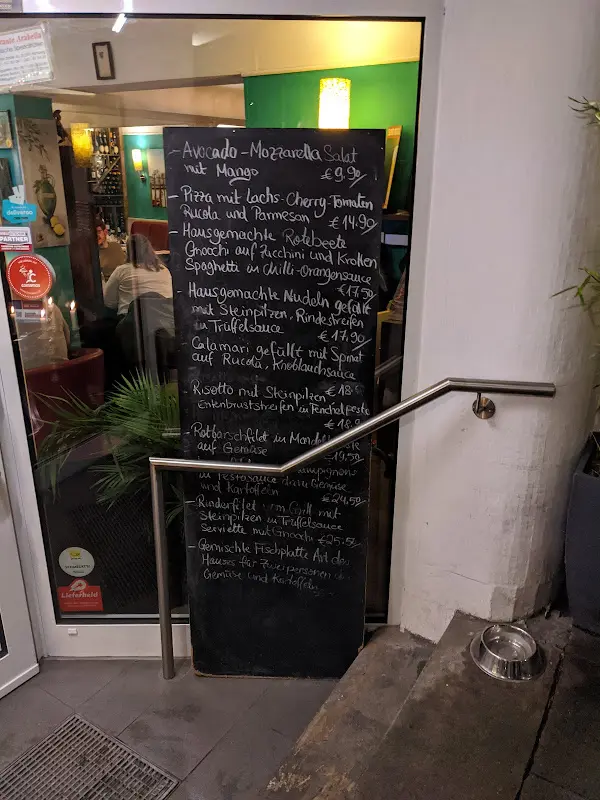 deliveroo
PARTNER
Lieferheld
- Avocado - Mozzarella Salat
mit Mango €9,90
- Pizza mit Lachs - Cherry-Tomaten
Rucola und Parmesan €14.90
- Hausgemachte Rotebeete
Gnocchi auf Zucchini und Krollen
Spaghetti in chilli-Orangensauce
€17.50
- Hausgemachte Nudeln gefüllt
mit Steinpilzen, Rindestreifen
in Trüffelsauce €17,90
- Calamari gefüllt mit Spinat
auf Rucola, Knoblauchsauce
€18
- Risotto mit Steinpilzen
Entenbruststreifen in
€18,9
- Rotbarschfilet in
auf Gemüse €19,50
dazu Gemüse
und Kartoffeln €24,50
- Rinderfilet vom Grill mit
Steinpilzen in Trüffelsauce
Serviette mit Gnocchi €25.5
- Gemischte Fischplatte Art des
Hauses für zwei personen
Gemüse und Kartoffeln